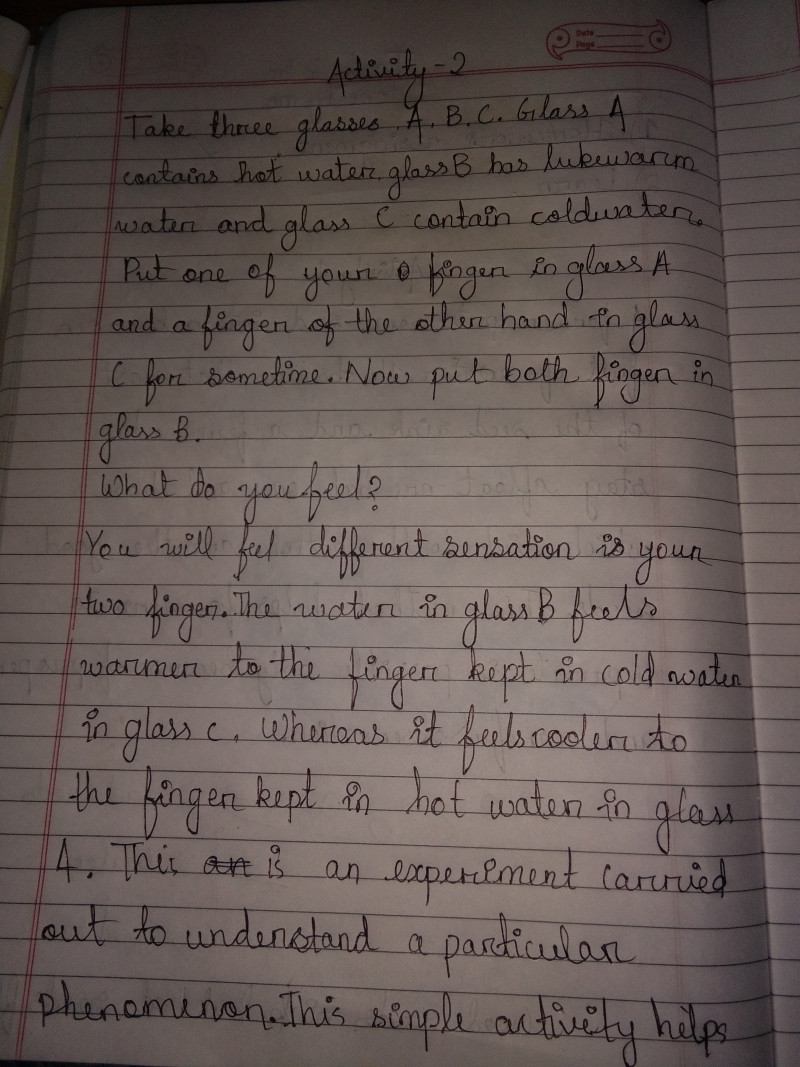 Date
Page
Activity-2
Take three glasses A, B, C. Glass A
contains hot water, glass B has lukewarm
water and glass C contain coldwater.
Put one of your finger in glass A
and a finger of the other hand in glass
C for sometime. Now put both finger in
glass B.
What do you feel?
You will feel different sensation is your
two finger. The water in glass B feels
warmer to the finger kept in cold water
in glass C, Whereas it feels cooler to
the finger kept in hot water in glass
A. This an is an experiement carried
out to understand a particular
phenomenon. This simple activity helps